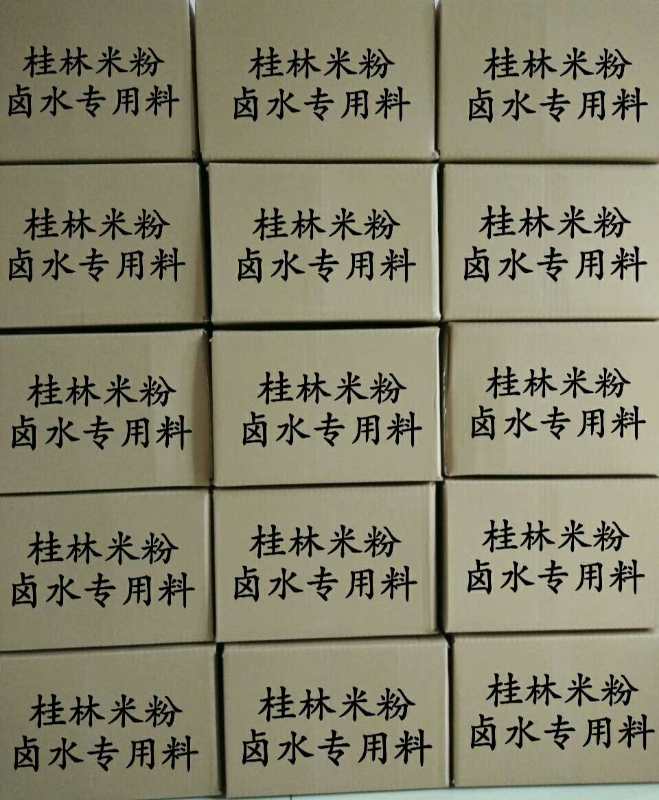 桂林米粉
卤水专用料
桂林米粉
卤水专用料
桂林米粉
卤水专用料
桂林米粉
卤水专用料
桂林米粉
卤水专用料
桂林米粉
卤水专用料
桂林米粉
卤水专用料
桂林米粉
卤水专用料
桂林米粉
卤水专用料
桂林米粉
卤水专用料
桂林米粉
卤水专用料
桂林米粉
卤水专用料
桂林米粉
卤水专用料
桂林米粉
卤水专用料
桂林米粉
卤水专用料